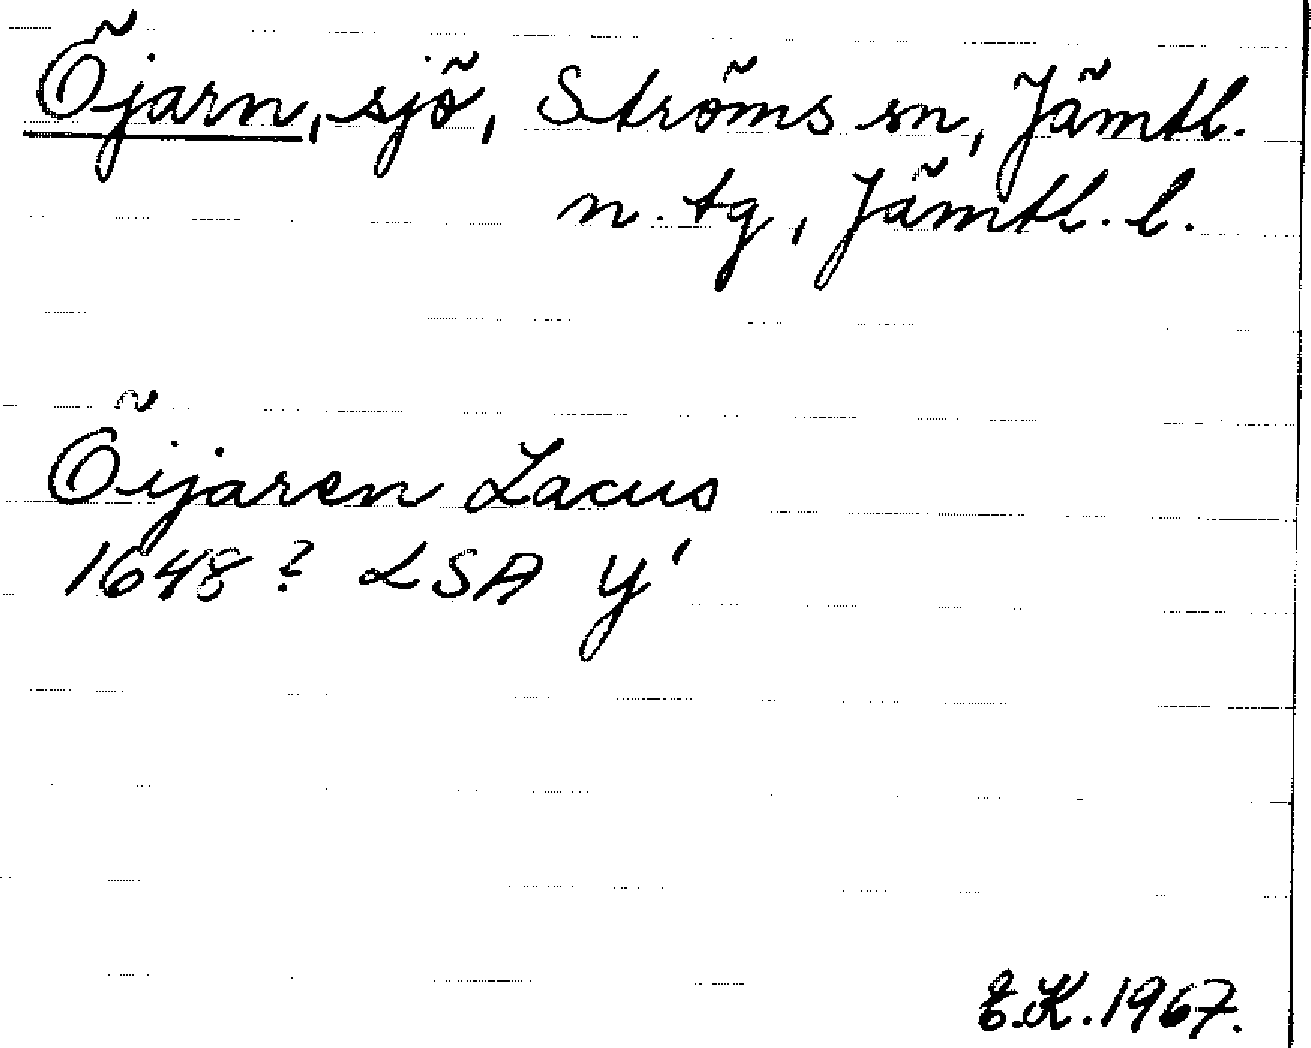 Öjarn, sjö, Ströms sn, Jämtl.
n. tg, Jämtl. l.
Öijaren Lacus
1648? LSA Y'
E.K. 1967.